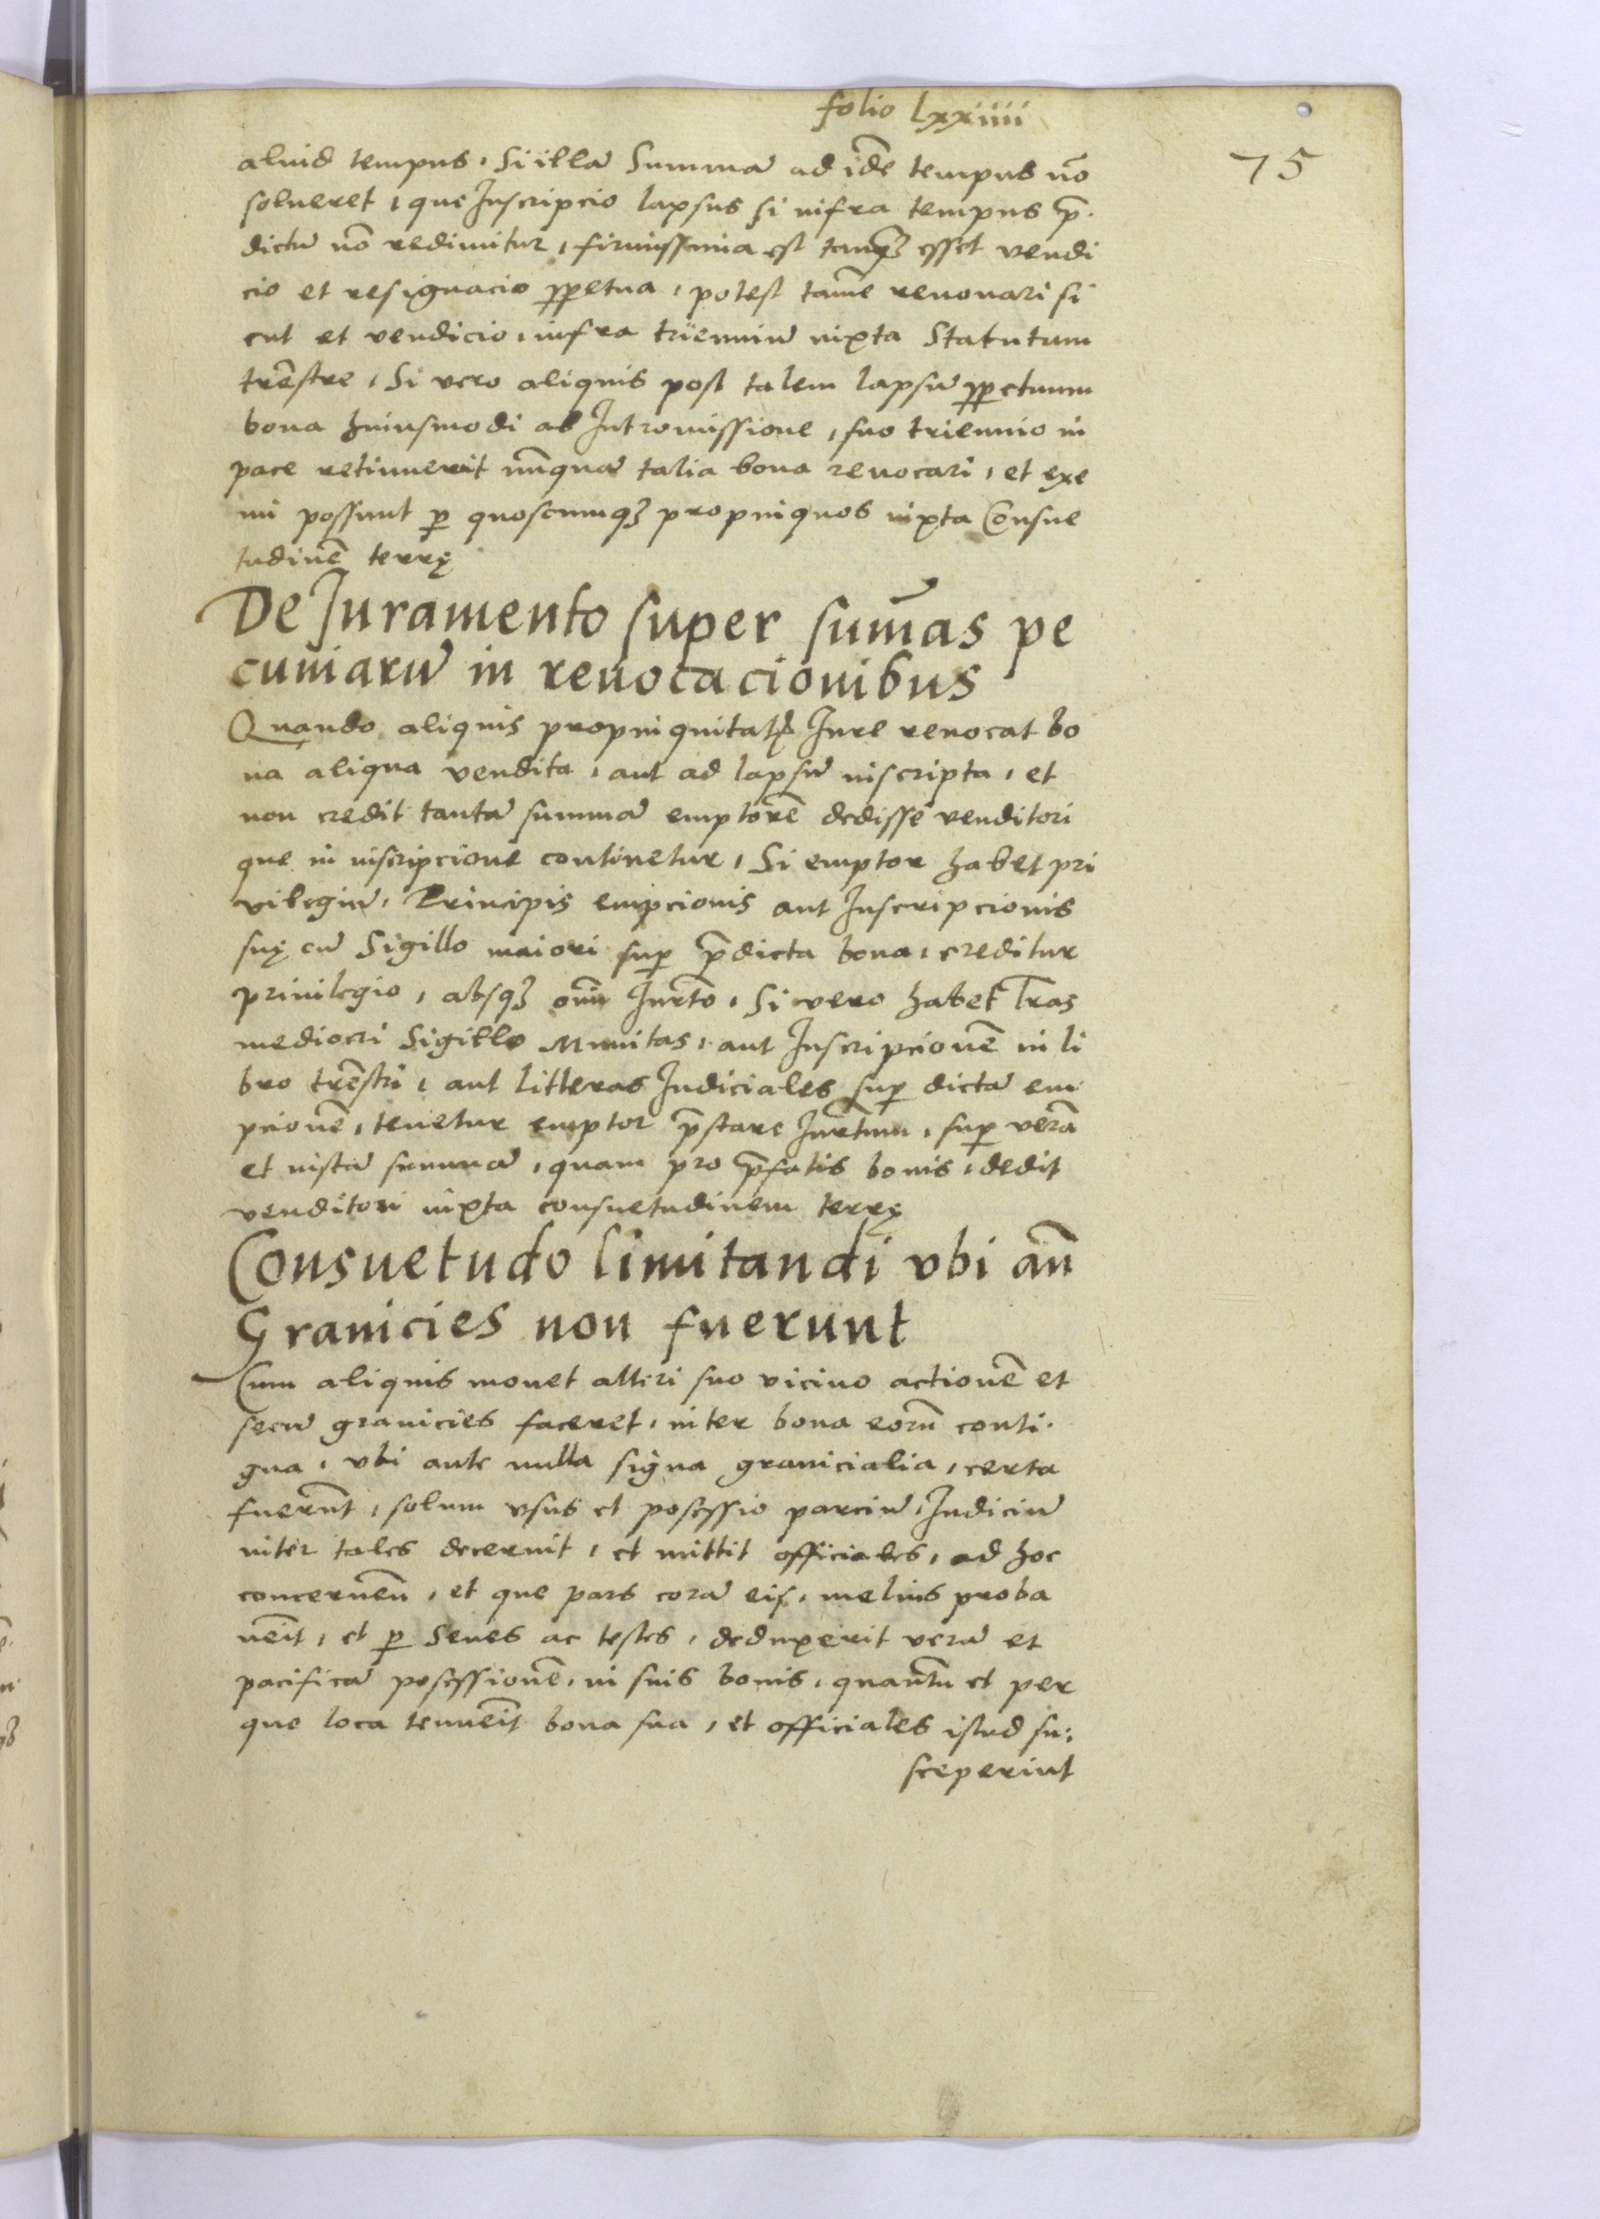 folio lxxiiii
75
aliud tempus, Si illā Summā ad idē tempus nō
solueret, que Inscripcio lapsus si infra tempus p̄
dictū nō redimitur, firmissima est tanqꝫ esset vendi
cio et resignacio ꝑpetua, potest tamē reuocari si
cut et vendicio, infra trienniū iuxta Statutum
trēstre, Si vero aliquis post talem lapsū ꝑpetuum
bona huiusmodi ab Intromissione, suo triennio in
pace retinuerit nūquā talia bona reuocari, et exe
mi possunt ꝑ quoscumqꝫ propinquos iuxta Consue
tudinē terrę
De Juramento super sum̄as pe
cuniarū in reuocacionibus
Quando aliquis propinquitatꝭ Jure reuocat bo
na aliqua vendita, aut ad lapsū inscripta, et
non credit tantā summā emptorē dedisse venditori
que in inscripcione continetur, Si emptor habet pri
vilegiū, Principis empcionis aut Inscripcionis
suę cū Sigillo maiori suꝑ p̄dicta bona, creditur
priuilegio, absqꝫ om̄i Jurt̄o, Si vero habet l̄ras
mediocri Sigillo Munitas, aut Inscripcionē in li
bro trēstri, aut litteras Judiciales suꝑ dictā em
pcionē, tenetur emptor p̄stare Jurt̄um, suꝑ verā
et iustā summā, quam pro p̄fatis bonis, dedit
venditori iuxta consuetudinem terrę
Consuetudo limitandi vbi an̄
Granicies non fuerunt
Cum aliquis mouet alteri suo vicino actionē et
secū granicies faceret, inter bona eorū conti
gua, vbi ante nulla signa granicialia, certa
fuerūt, solum vsus et posessio parciū, Judiciū
inter tales decernit, et mittit officiales, ad hoc
concernen̄, et que pars corā eis, melius proba
uēit, et ꝑ Senes ac testes, deduxerit verā et
pacificā posessionē, in suis bonis, quantū et per
que loca tenuēit bona sua, et officiales istud su:
sceperint